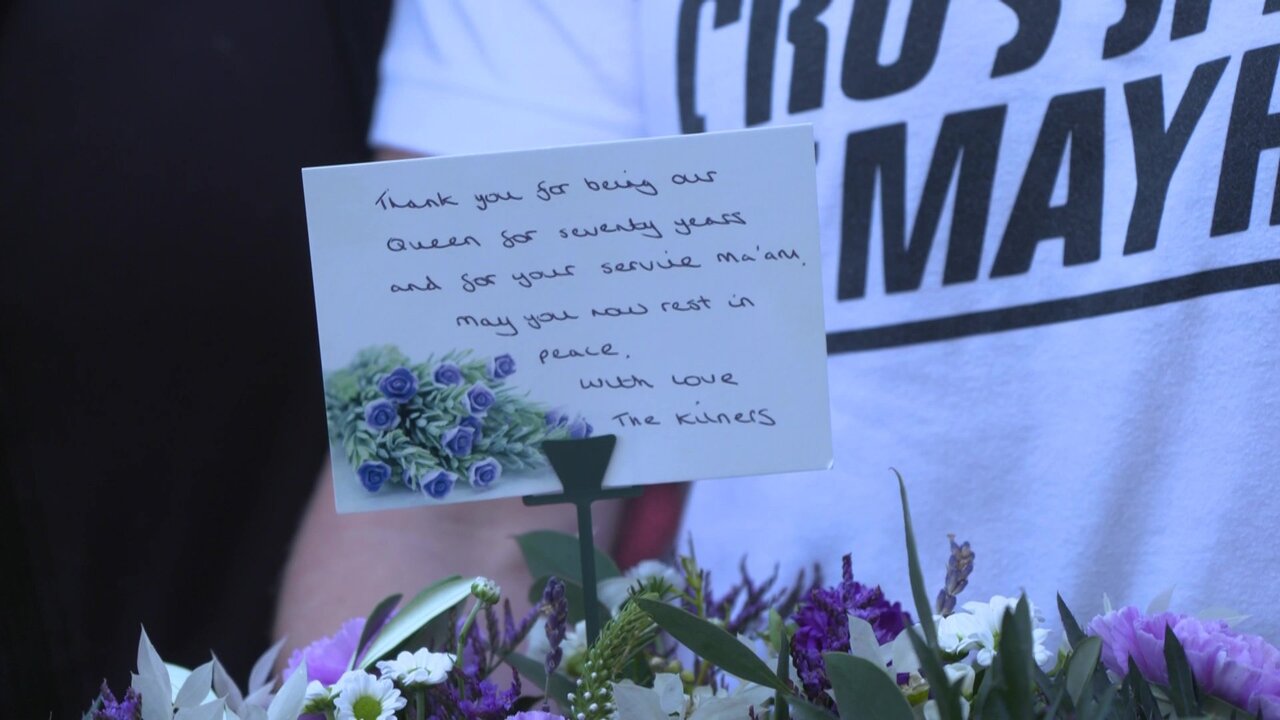 CROSSFI
MAYH
Thank you for being our
Queen for seventy years
and for your service Ma'am.
May you now rest in
peace.
With Love
The Kilners